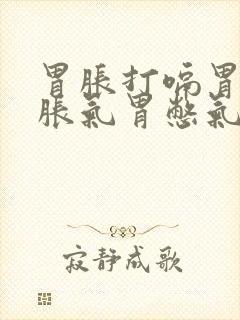 胃胀打嗝胃
胀氣胃憋氣
寂静成歌